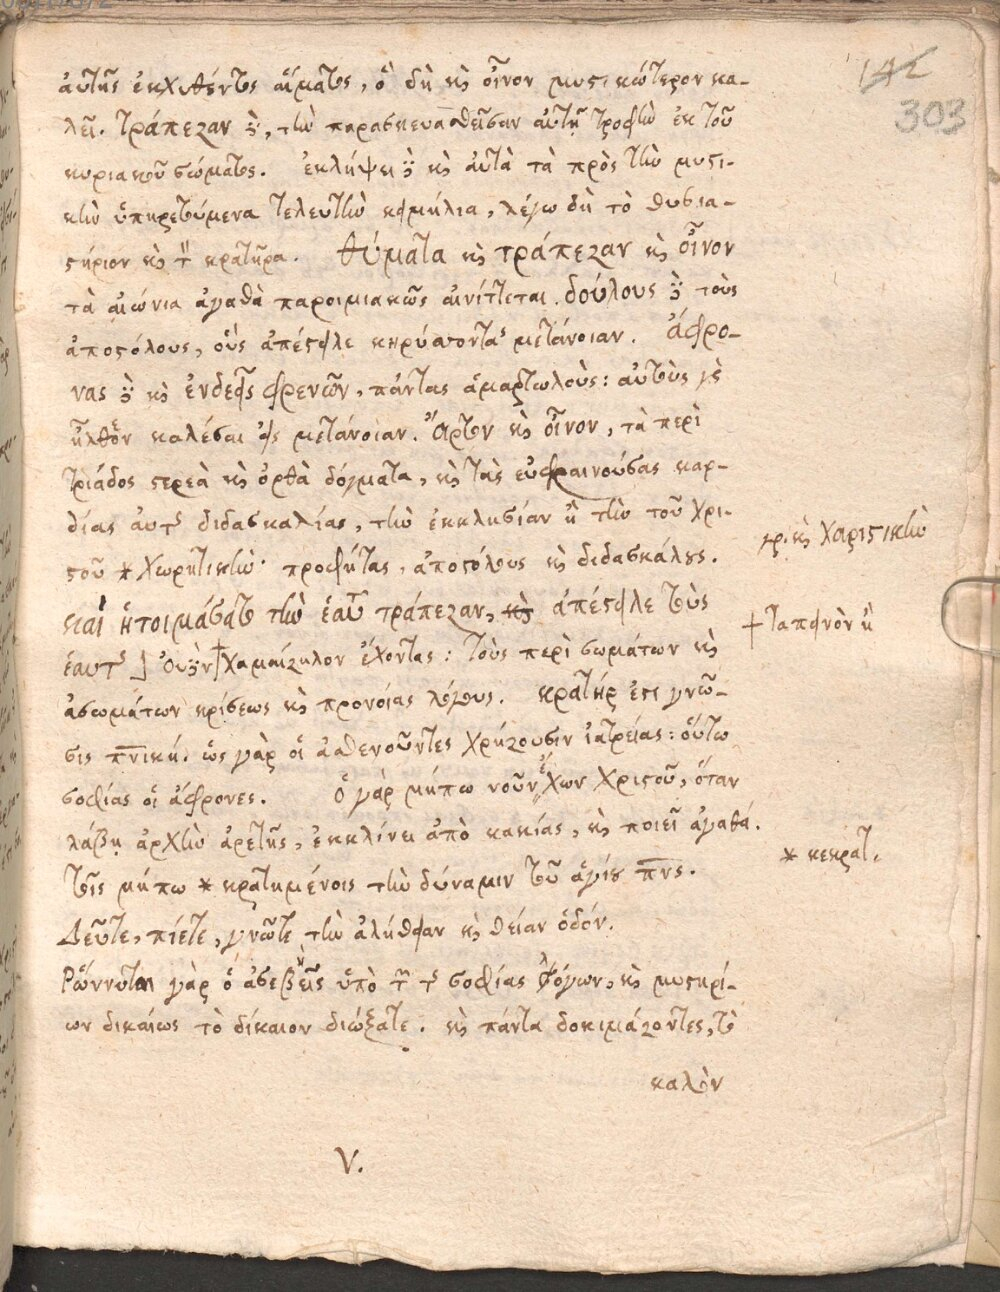 142
303
αὐτῆς ἐκχυθέντος αἵματος, ὃ δὴ κὶ οἶνον μυστικώτερον κα-
λεῖ. τράπεζαν δὲ, τὴν παρασκευασθεῖσαν αὐτῇ τροφὴν ἐκ τοῦ
κυριακοῦ σώματος. ἐκλήψει δὲ κὶ αὐτὰ τὰ πρὸς τὴν μυστι-
κὴν ὑπηρετούμενα τελευτὴν κειμήλια, λέγω δὴ τὸ θυσια-
στήριον κὶ τὸν κρατῆρα. θύματα κὶ τράπεζαν κὶ οἶνον
τὰ αἰώνια ἀγαθὰ παροιμιακῶς αἰνίττεται. δούλους δὲ τοὺς
ἀποστόλους, οὓς ἀπέστειλε κηρύττοντας μετάνοιαν. Ἄφρο-
νας δὲ κὶ ἐνδεεῖς φρενῶν, πάντας ἁμαρτωλούς: αὐτοὺς γὰρ
ἦλθεν καλέσαι εἰς μετάνοιαν. Ἄρτον κὶ οἶνον, τὰ περὶ
τριάδος στερεὰ κὶ ὀρθὰ δόγματα, κὶ τὰς εὐφραινούσας καρ-
δίας αὐτῶν διδασκαλίας, τὴν ἐκκλησίαν ἢ τὴν τοῦ Χρι-
στοῦ * Χωρητικήν· προφήτας, ἀποστόλους κὶ διδασκάλους.
γρ. κὶ Χαριστικὴν
καὶ ἡτοιμάσατο τὴν ἑαυτῆς τράπεζαν, κὶ ἀπέστειλε τοὺς
ἑαυτῆς] Οὐδὲν † χαμαίζηλον ἔχοντας: τοὺς περὶ σωμάτων κὶ
† ταπεινὸν ἢ
ἀσωμάτων κρίσεως κὶ προνοίας λόγους. κρατήρ ἐστι γνῶ-
σις πνική. ὡς γὰρ οἱ ἀσθενοῦντες χρῄζουσιν ἰατρείας: οὕτω
σοφίας οἱ ἄφρονες. Ὁ γὰρ μήπω νοῦν ἔχων Χριστοῦ, ὅταν
λάβῃ ἀρχὴν ἀρετῆς, ἐκκλίνει ἀπὸ κακίας, κὶ ποιεῖ ἀγαθά.
τοῖς μήπω * κρατημένοις τὴν δύναμιν τοῦ ἁγίου πνς.
* κεκρατ.
Δεῦτε, πίετε, γνῶτε τὴν ἀλήθειαν κὶ θείαν ὁδόν.
Ῥώννυται γὰρ ὁ ἀσεβὴς ὑπὸ τῶν τῆς σοφίας λόγων, κὶ μυστηρί-
ων δικαίως τὸ δίκαιον διώξατε. κὶ πάντα δοκιμάζοντες, τὸ
καλὸν
V.